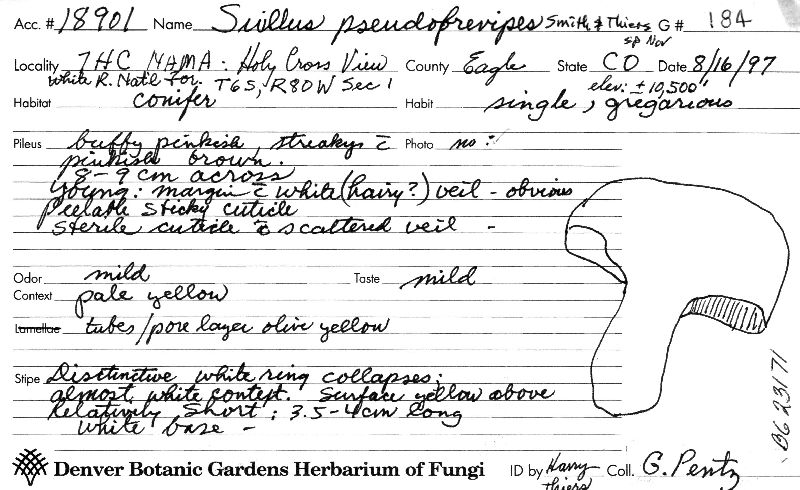 Acc. # 18901 Name Suillus pseudobrevipes Smith & Thiers G# 184
sp Nov
Locality 7HC NAMA: Holy Cross View County Eagle State CO Date 8/16/97
White R. Nat'l For. T6S, R80W Sec 1 elev: ±10,500'
Habitat conifer Habit single, gregarious
Pileus buffy pinkish, streaky c̄ Photo no
pinkish brown.
8-9 cm across
Young: margin c̄ white (hairy?) veil - obvious
Peelable sticky cuticle
Sterile cuticle c̄ scattered veil -
Odor mild Taste mild
Context pale yellow
Lamellae tubes/pore layer olive yellow
Stipe Disctinctive white ring collapses;
almost white context. Surface yellow above
Relatively short; 3.5-4cm long
white base -
Denver Botanic Gardens Herbarium of Fungi ID by Harry Thiers Coll. G. Pentz
BG 23171